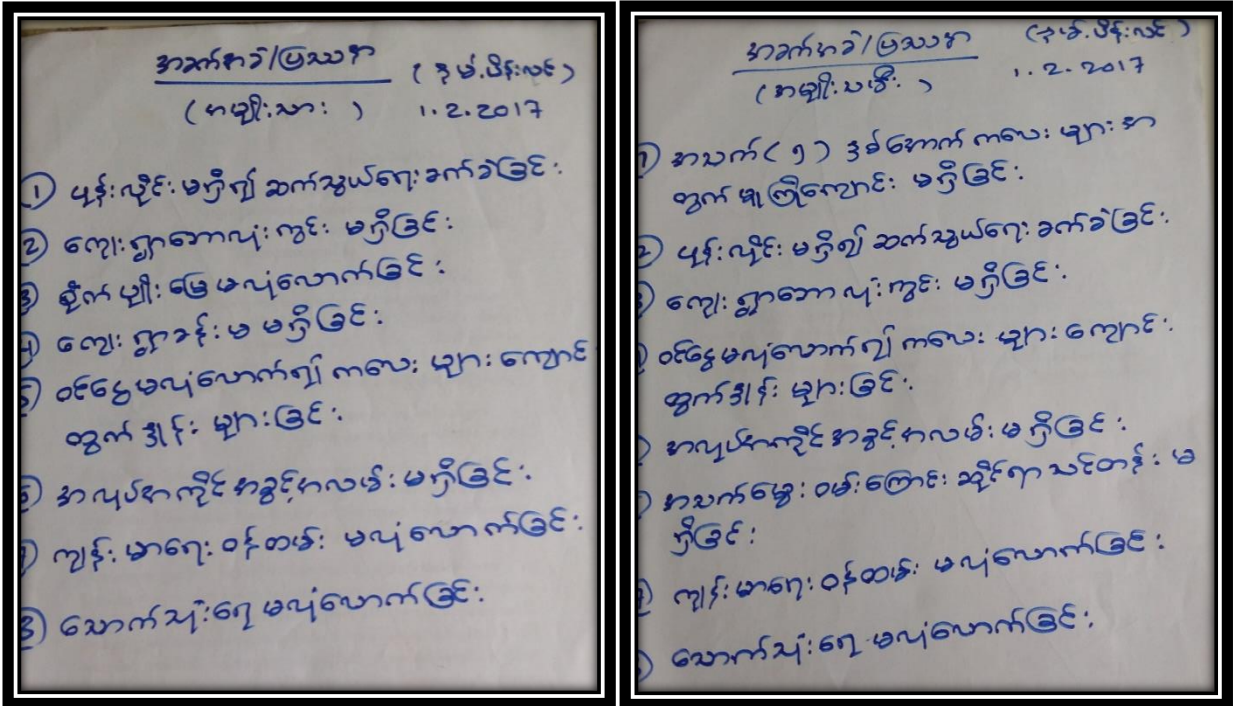 အခက်အခဲ/ပြဿနာ (နမ့်.ပိန်းလင်)
(အမျိုးသား) 1.2.2017
① ဖုန်းလိုင်းမရှိ၍ ဆက်သွယ်ရေးခက်ခဲခြင်း
② ကျေးရွာဘောလုံးကွင်း မရှိခြင်း
③ စိုက်ပျိုးမြေမလုံလောက်ခြင်း
၄ ကျေးရွာခန်းမ မရှိခြင်း
၅ ဝင်ငွေမလုံလောက်၍ ကလေးများကျောင်း
ထွက်နှုန်းများခြင်း
၆ အလုပ်အကိုင်အခွင့်အလမ်းမရှိခြင်း
၇ ကျန်းမာရေးဝန်ထမ်း မလုံလောက်ခြင်း
၈ သောက်သုံးရေမလုံလောက်ခြင်း
အခက်အခဲ/ပြဿနာ (နမ့်.ပိန်းလင်)
(အမျိုးသမီး) 1.2.2017
၁ အသက်(၅)နှစ်အောက် ကလေးများအ
တွက် မူကြိုကျောင်း မရှိခြင်း
၂ ဖုန်းလိုင်းမရှိ၍ ဆက်သွယ်ရေးခက်ခဲခြင်း
၃ ကျေးရွာဘောလုံးကွင်း မရှိခြင်း
ဝင်ငွေမလုံလောက်၍ ကလေးများကျောင်း
ထွက်နှုန်းများခြင်း
အလုပ်အကိုင်အခွင့်အလမ်းမရှိခြင်း
အသက်မွေးဝမ်းကြောင်းဆိုင်ရာသင်တန်းမ
ရှိခြင်း
၇ ကျန်းမာရေးဝန်ထမ်း မလုံလောက်ခြင်း
သောက်သုံးရေ မလုံလောက်ခြင်း